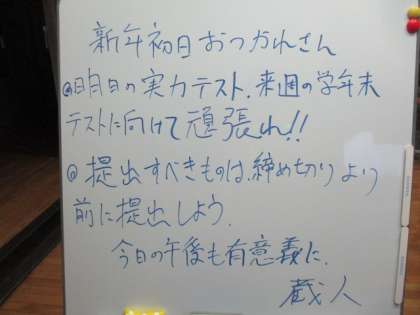 新年初日おつかれさん
@明日の実力テスト、来週の学年末
テストに向けて頑張れ!!
@提出すべきものは、締め切りより
前に提出しよう。
今日の午後も有意義に。
蔵人